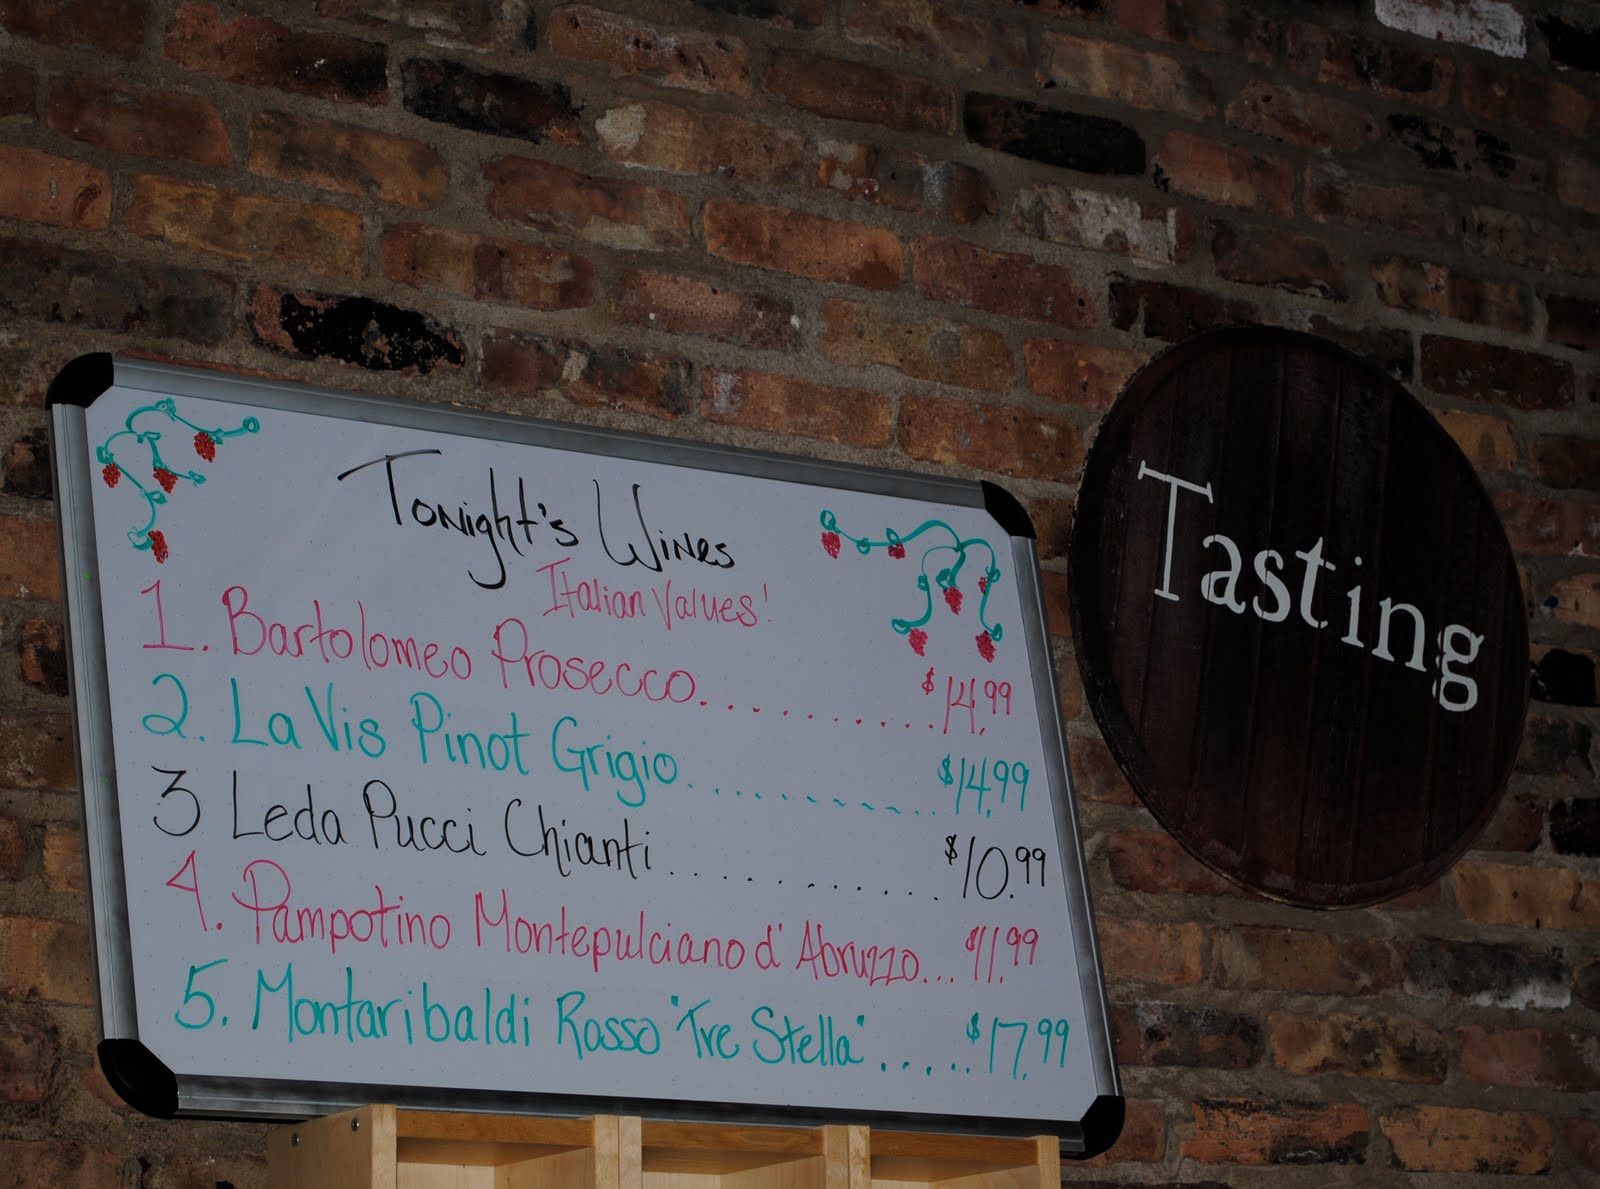 Tonight's Wines
Italian Values!
1. Bartolomeo Prosecco............ $14.99
2. La Vis Pinot Grigio............. $14.99
3 Leda Pucci Chianti............ $10.99
4. Pampotino Montepulciano d'Abruzzo... $11.99
5. Montaribaldi Rosso "Tre Stella"..... $17.99
Tasting